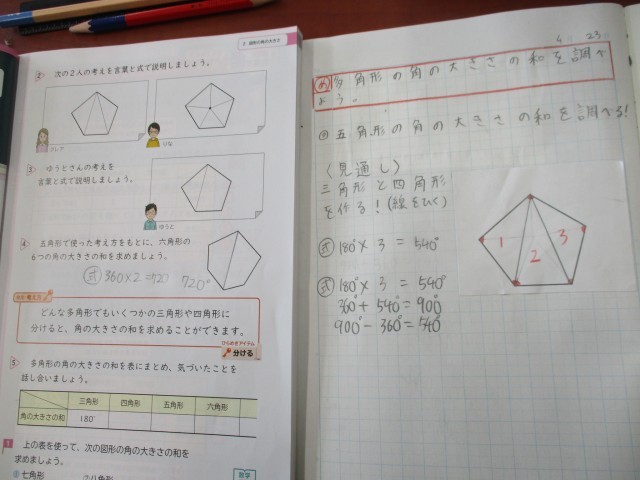 2 図形の角の大きさ
② 次の2人の考えを言葉と式で説明しましょう。
りな
③ ゆうとさんの考えを
言葉と式で説明しましょう。
ゆうと
④ 五角形で使った考え方をもとに、六角形の
6つの角の大きさの和を求めましょう。
式 360×2=720 720°
どんな多角形でもいくつかの三角形や四角形に
分けると、角の大きさの和を求めることができます。
ひらめきアイテム
分ける
⑤ 多角形の角の大きさの和を表にまとめ、気づいたことを
話し合いましょう。
三角形 四角形 五角形 六角形
角の大きさの和 180°
1 上の表を使って、次の図形の角の大きさの和を
求めましょう。
①七角形 ②八角形
4 23
め 多角形の角の大きさの和を調べ
よう。
五角形の角の大きさの和を調べる!
〈見通し〉
三角形と四角形
を作る!(線をひく)
式 180°×3=540°
式 180°×3=540°
360°+540°=900°
900°-360°=540°
1 2 3